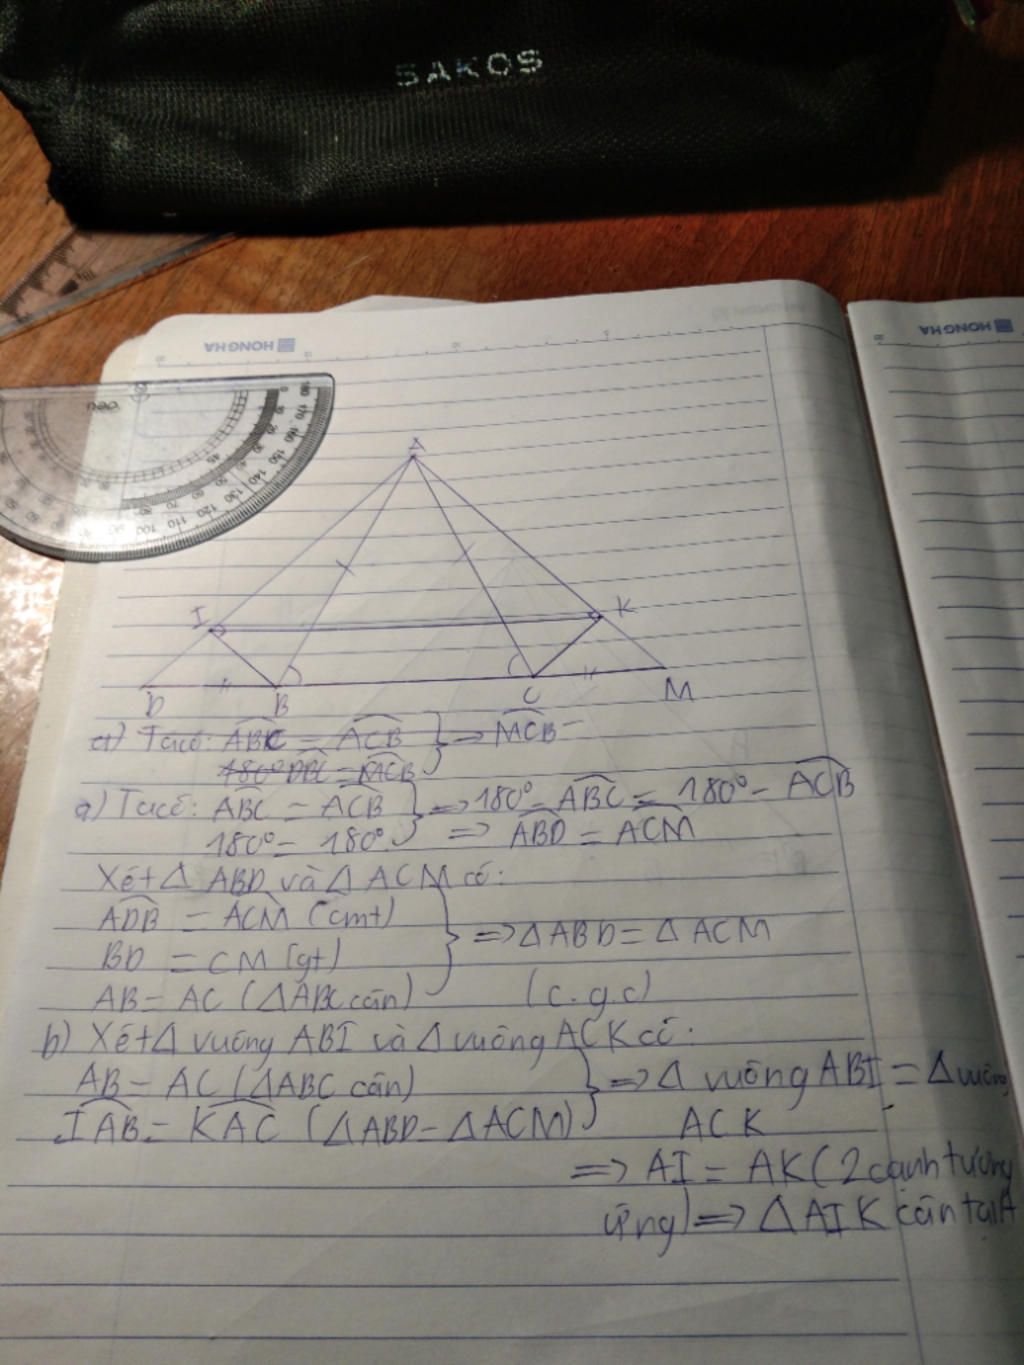 SAKOS
HONG HA
HONG HA
A
I
K
D
B
C
M
a) Ta có: ABC = ACB } => MCB =
180° DBC = MCB
a) Ta có: ABC = ACB } => 180° - ABC = 180° - ACB
180° = 180° => ABD = ACM
Xét Δ ABD và Δ ACM có:
ADB = ACM (cmt)
BD = CM (gt) } => Δ ABD = Δ ACM
AB = AC (ΔABC cân) (c.g.c)
b) Xét Δ vuông ABI và Δ vuông ACK có:
AB = AC (ΔABC cân) } => Δ vuông ABI = Δ vuông
IAB = KAC (ΔABD = ΔACM) ACK
=> AI = AK (2 cạnh tương
ứng) => Δ AIK cân tại A